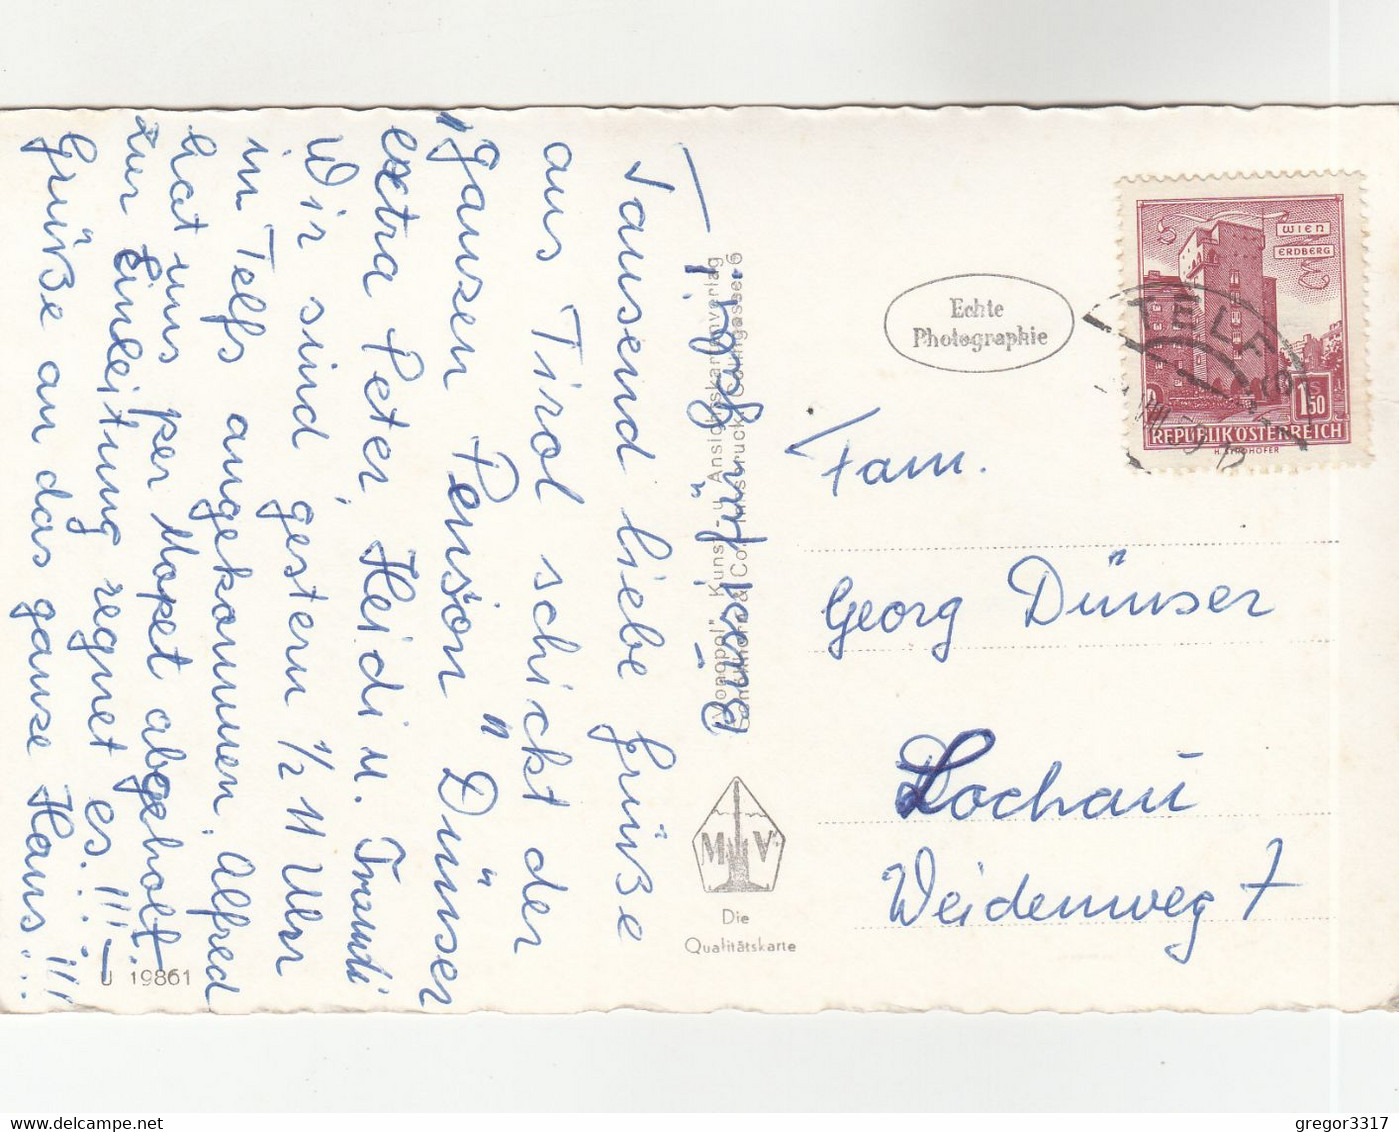 Tausend liebe Grüße
aus Tirol schickt der
"ganzen Pension" Dünser
extra Peter, Heidi u. Traudi
Wir sind gestern 1/2 11 Uhr
in Telfs angekommen. Alfred
hat uns per Moped abgeholt.
Zur Einleitung regnet es.. !!!
Grüße an das ganze Haus.. !!!
Bussi für
"Monopol" Kunst- u. Ansichtskartenverlag
Die
Qualitätskarte
MV
U 19861
Echte
Photographie
WIEN
ERDBERG
TELFS
1.50
REPUBLIK ÖSTERREICH
Fam.
Georg Dünser
Lochau
Weidenweg 7
gregor3317
www.delcampe.net